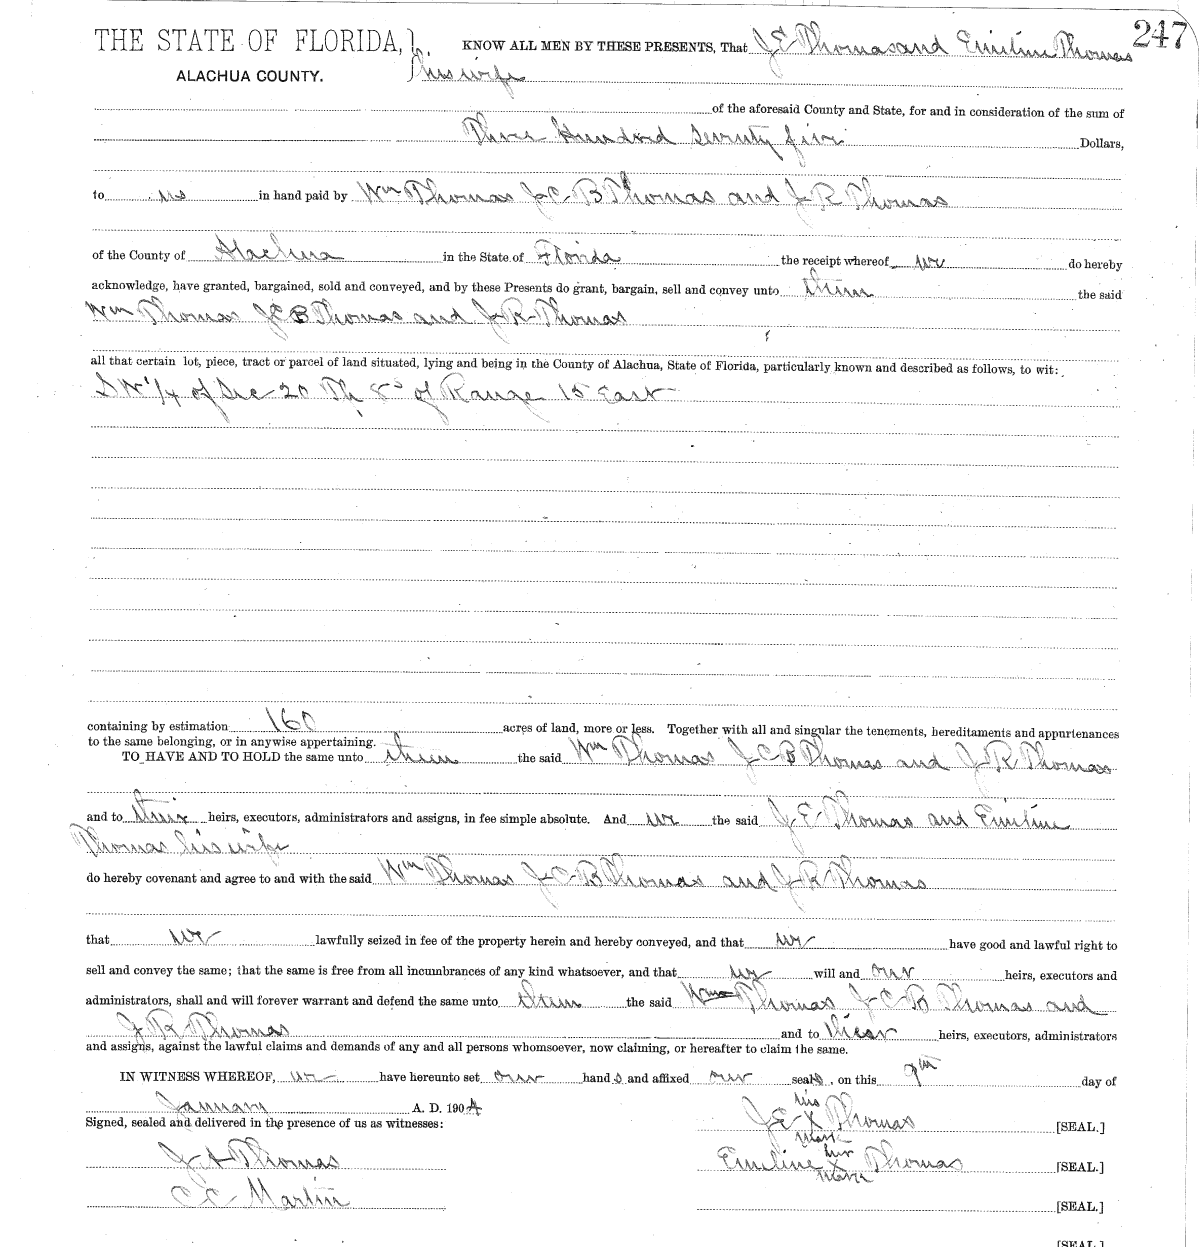 247
THE STATE OF FLORIDA, KNOW ALL MEN BY THESE PRESENTS, That J E Thomas and Emiline Thomas
ALACHUA COUNTY. his wife
of the aforesaid County and State, for and in consideration of the sum of
Three Hundred Seventy five Dollars,
to us in hand paid by Wm Thomas J C B Thomas and J R Thomas
of the County of Alachua in the State of Florida the receipt whereof we do hereby
acknowledge, have granted, bargained, sold and conveyed, and by these Presents do grant, bargain, sell and convey unto them the said
Wm Thomas J C B Thomas and J R Thomas
all that certain lot, piece, tract or parcel of land situated, lying and being in the County of Alachua, State of Florida, particularly known and described as follows, to wit:
1/4 of Sec 20 Tp 8 S of Range 15 East
containing by estimation 160 acres of land, more or less. Together with all and singular the tenements, hereditaments and appurtenances
to the same belonging, or in anywise appertaining.
TO HAVE AND TO HOLD the same unto them the said Wm Thomas J C B Thomas and J R Thomas
and to their heirs, executors, administrators and assigns, in fee simple absolute. And we the said J. E. Thomas and Emiline
Thomas his wife
do hereby covenant and agree to and with the said Wm Thomas J C B Thomas and J R Thomas
that we lawfully seized in fee of the property herein and hereby conveyed, and that we have good and lawful right to
sell and convey the same; that the same is free from all incumbrances of any kind whatsoever, and that we will and our heirs, executors and
administrators, shall and will forever warrant and defend the same unto them the said Wm Thomas J C B Thomas and
J R Thomas and to thier heirs, executors, administrators
and assigns, against the lawful claims and demands of any and all persons whomsoever, now claiming, or hereafter to claim the same.
IN WITNESS WHEREOF, we have hereunto set our hands and affixed our seals, on this 9th day of
January A. D. 1904
Signed, sealed and delivered in the presence of us as witnesses:
his
J E X Thomas [SEAL.]
mark
J A Thomas
her
Emiline X Thomas [SEAL.]
mark
C C Martin
[SEAL.]
[SEAL.]